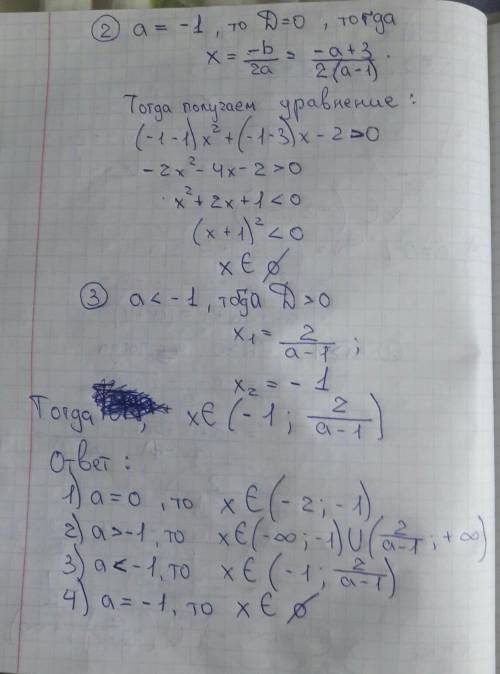 ② a = -1, то D=0, тогда
x = -b/2a = -a+3/2(a-1).
Тогда получаем уравнение:
(-1-1)x² + (-1-3)x - 2 > 0
-2x² - 4x - 2 > 0
x² + 2x + 1 < 0
(x+1)² < 0
x ∈ ∅
③ a < -1, тогда D > 0
x₁ = 2/a-1 ;
x₂ = -1
Тогда, x ∈ (-1; 2/a-1)
Ответ:
1) a = 0, то x ∈ (-2; -1)
2) a > -1, то x ∈ (-∞; -1) ∪ (2/a-1; +∞)
3) a < -1, то x ∈ (-1; 2/a-1)
4) a = -1, то x ∈ ∅